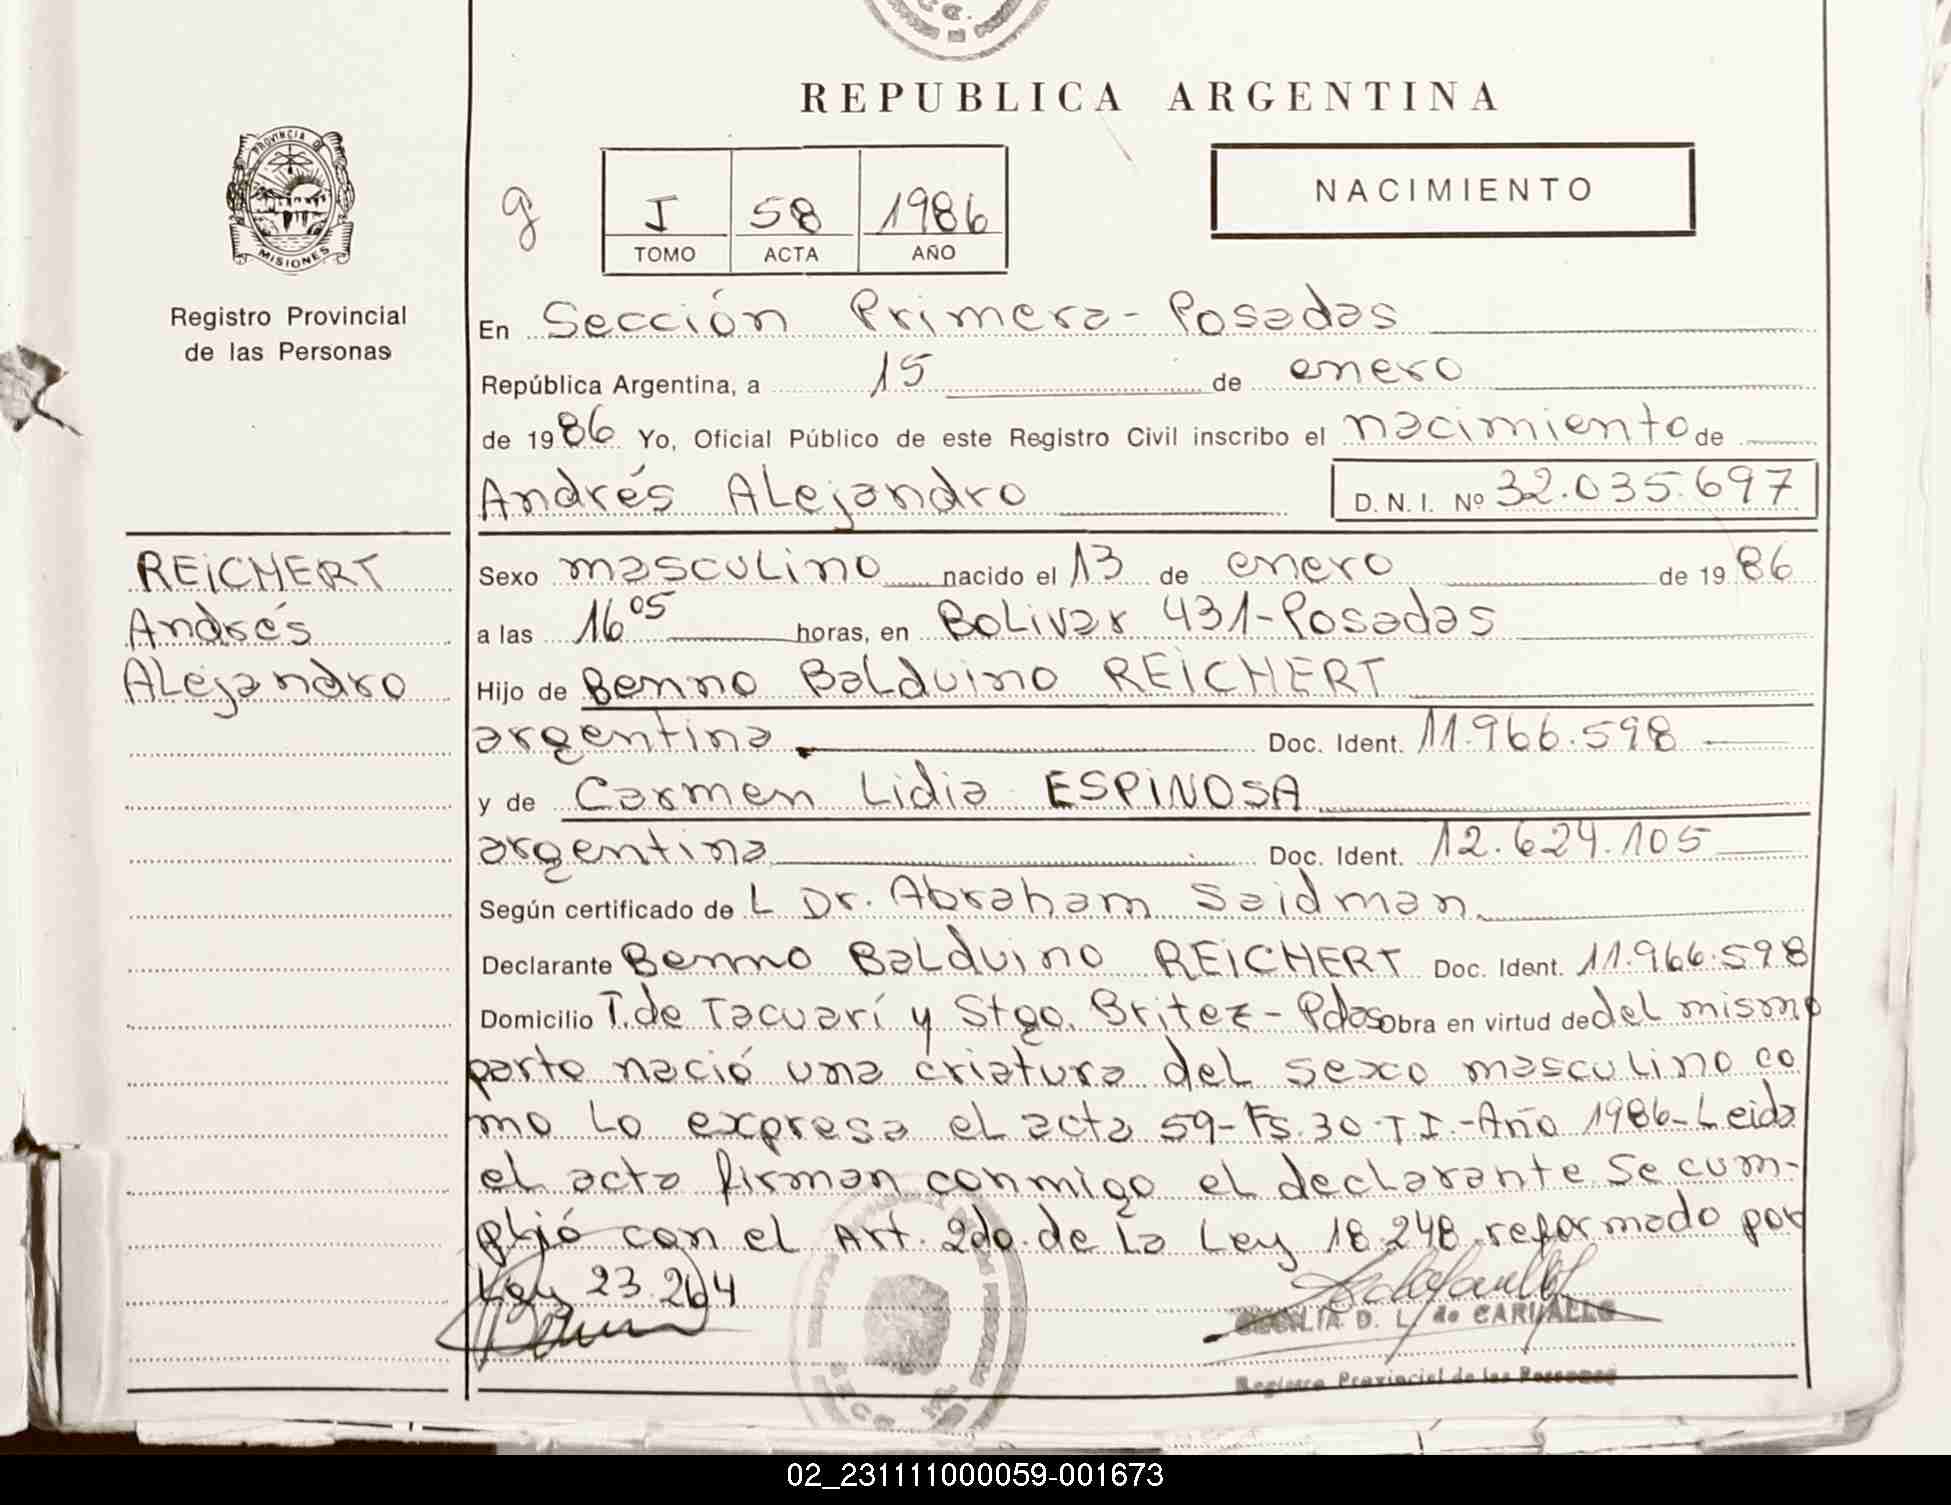 REPUBLICA ARGENTINA
PROVINCIA DE
MISIONES
Registro Provincial
de las Personas
g
I 58 1986
TOMO ACTA AÑO
NACIMIENTO
En Sección Primera - Posadas
República Argentina, a 15 de enero
de 1986 Yo, Oficial Público de este Registro Civil inscribo el nacimiento de
Andrés Alejandro D. N. I. Nº 32.035.697
REICHERT
Andrés
Alejandro
Sexo masculino nacido el 13 de enero de 1986
a las 16 05 horas, en Bolivar 431-Posadas
Hijo de Benno Balduino REICHERT
argentina Doc. Ident. 11.966.598
y de Carmen Lidia ESPINOSA
argentina Doc. Ident. 12.624.105
Según certificado de L Dr. Abraham Saidman
Declarante Benno Balduino REICHERT Doc. Ident. 11.966.598
Domicilio T. de Tacuarí y Stgo. Britez - Pdas Obra en virtud de del mismo
parto nació una criatura del sexo masculino co
mo lo expresa el acta 59-Fs.30-T I.-Año 1986-Leida
el acta firman conmigo el declarante Se cum-
plió con el Art. 2do. de la Ley 18.248 reformado por
Ley 23.264
CECILIA D. L. de CARVALLO
Registro Provincial de las Personas
02_231111000059-001673